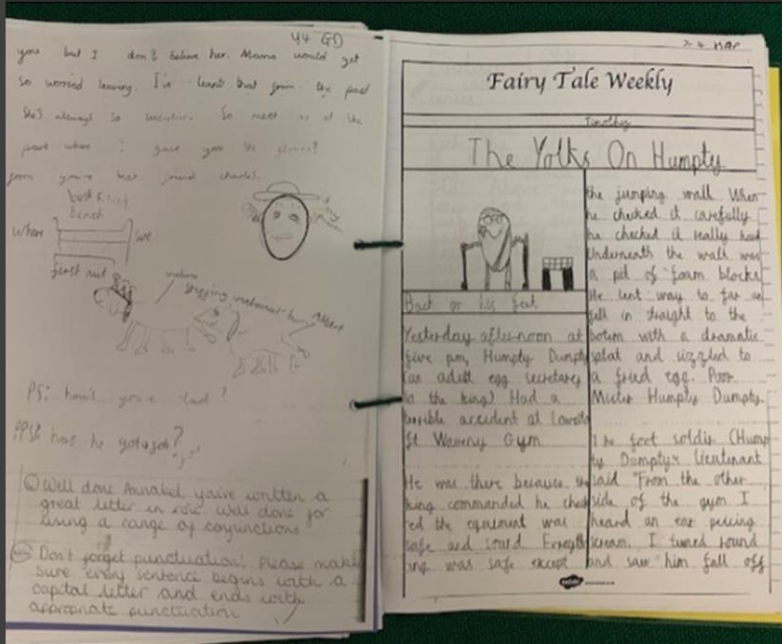 Y4 GD
gone but I don't believe her. Mama would get
so worried leaving. I've learnt that from the past
She's always so secretive. So meet me at the
park where I gave you the
from you're best friend charles.
best friend
bench
where we
first met
Albert
PS: how's you're dad?
PPS: has he got a job?
Well done Annabel, you've written a
great letter in role. Well done for
using a range of conjunctions
Don't forget punctuation! Please make
sure every sentence begins with a
capital letter and ends with
appropriate punctuation
Mar
Fairy Tale Weekly
Timothy
The Yolks On Humpty
Back on his feet
Yesterday afternoon at
five pm, Humpty Dumpty
(an adult egg secretary
to the king) Had a
terrible accident at
St Wavery Gym
He was there because the
king commanded he check
ed the equipment was
safe and
ing was safe except
the jumping wall When
he checked it carefully
he checked it really hard
Underneath the wall was
a pit of foam blocks
He lent way to far and
fell in straight to the
bottom with a dramatic
splat and sizzled to
a fried egg. Poor
Mister Humpty Dumpty.
The foot soldier (Hump
ty Dumpty's Lieutenant
said "From the other
side of the gym I
heard an ear piercing
scream. I turned round
and saw him fall off